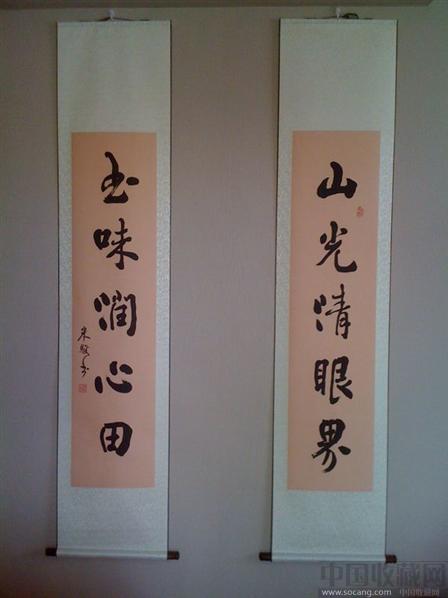 山光清眼界
书味润心田
中国收藏网
www.socang.com 中国收藏网